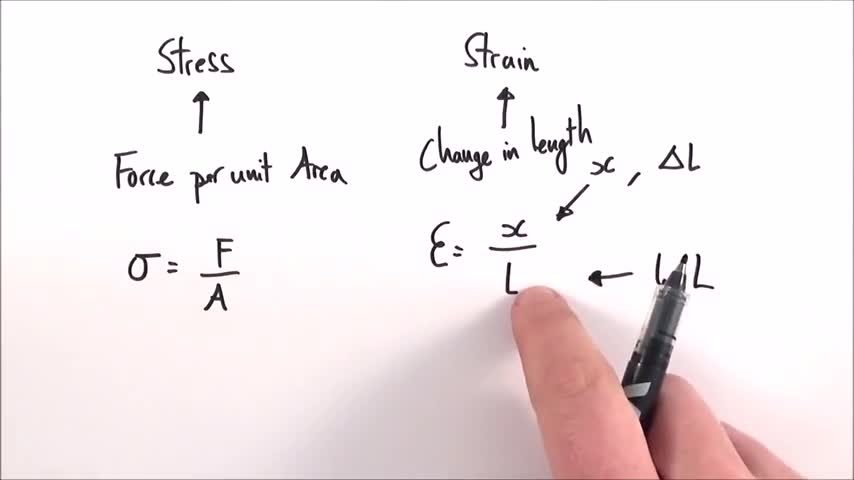 Stress
Force per unit Area
σ = F / A
Strain
Change in length
x , ΔL
ε = x / L
L